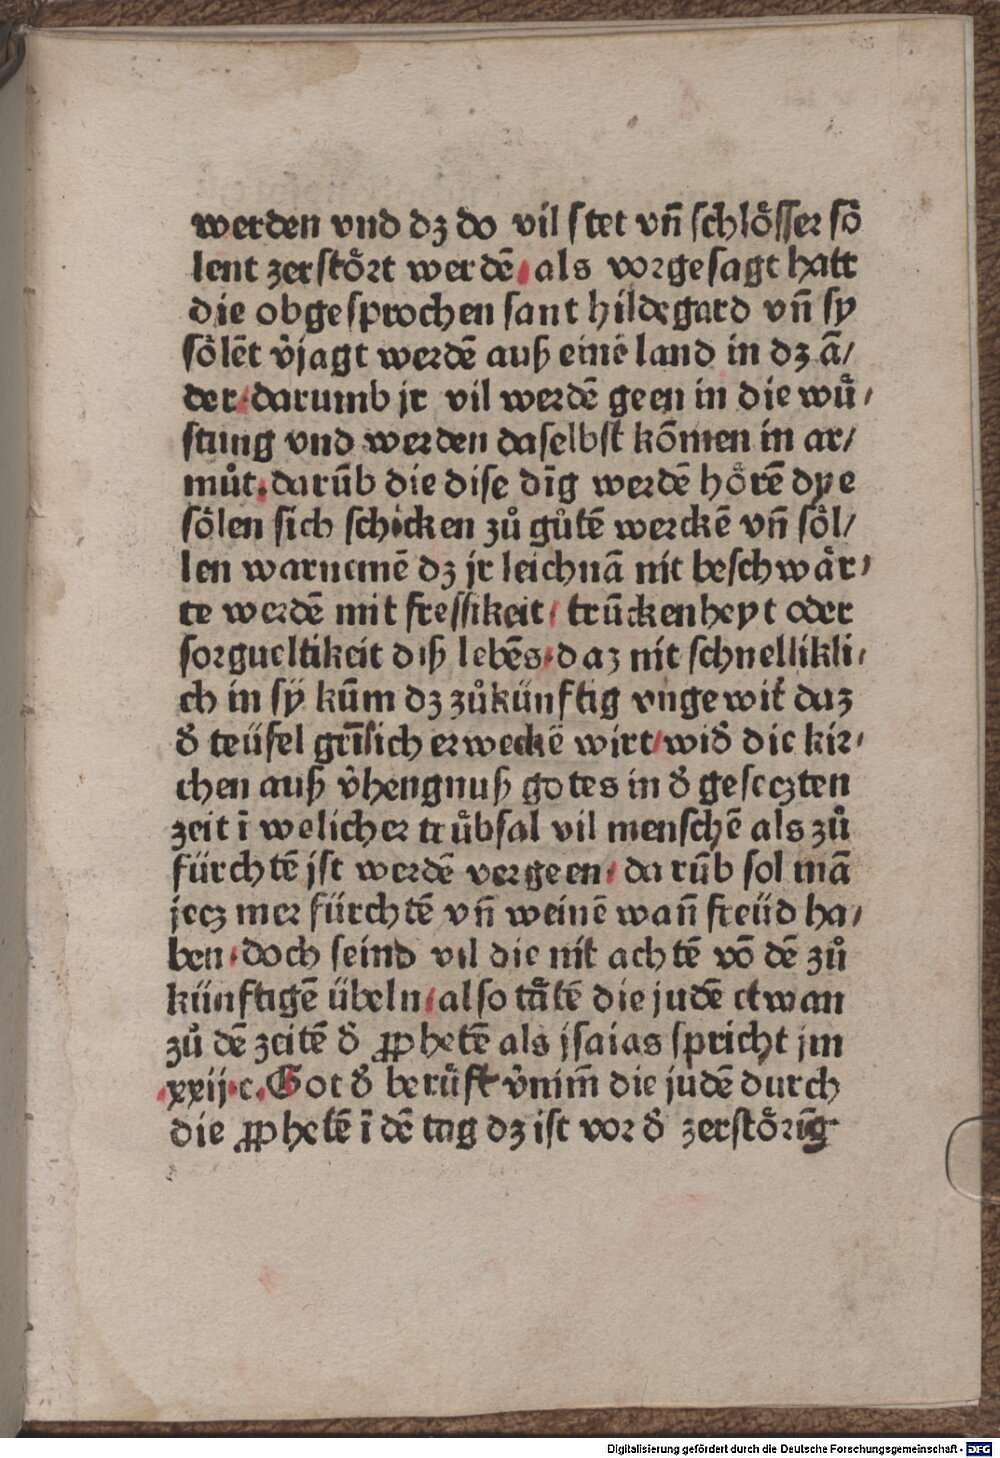 werden vnd dꝫ do vil stet vñ schloͤsser soͤ
lent zerstoͤrt werdē / als vorgesagt hatt
die obgesprochen sant hildegard vñ sy
soͤlēt v̓jagt werdē auß einē land in dꝫ ā/
der / darumb jr vil werdē geen in die wuͤ/
stung vnd werden daselbst kōmen in ar/
muͦt . darūb die dise dīg werdē hoͤrē dye
soͤlen sich schicken zuͦ guͦtē werckē vñ soͤl/
len warnemē dꝫ jr leichnā nit beschwaͤr/
te werdē mit fressikeit / trūckenheyt oder
sorgueltikeit diß lebēs / daz nit schnellikli/
ch in sÿ kūm dꝫ zuͦkünftig vngewit̓ daz
d̓ teüfel grīlich erweckē wirt / wid̓ die kir/
chen auß v̓hengnuß gotes in d̓ geseczten
zeit ī welicher truͤbsal vil menschē als zuͦ
fürchtē jst werdē vergeen / darūb sol mā
jecz mer fürchtē vñ weinē wañ freüd ha/
ben / doch seind vil die nit achtē vō dē zuͦ
künftigē übeln / also taͤtē die judē etwan
zuͦ dē zeitē d̓ ꝓphetē als jsaias spricht jm
.xxij.c. Got d̓ beruͤft v̓nim̄ die judē durch
die ꝓphetē ī dē tag dꝫ ist vor d̓ zerstoͤrūg
Digitalisierung gefördert durch die Deutsche Forschungsgemeinschaft - DFG